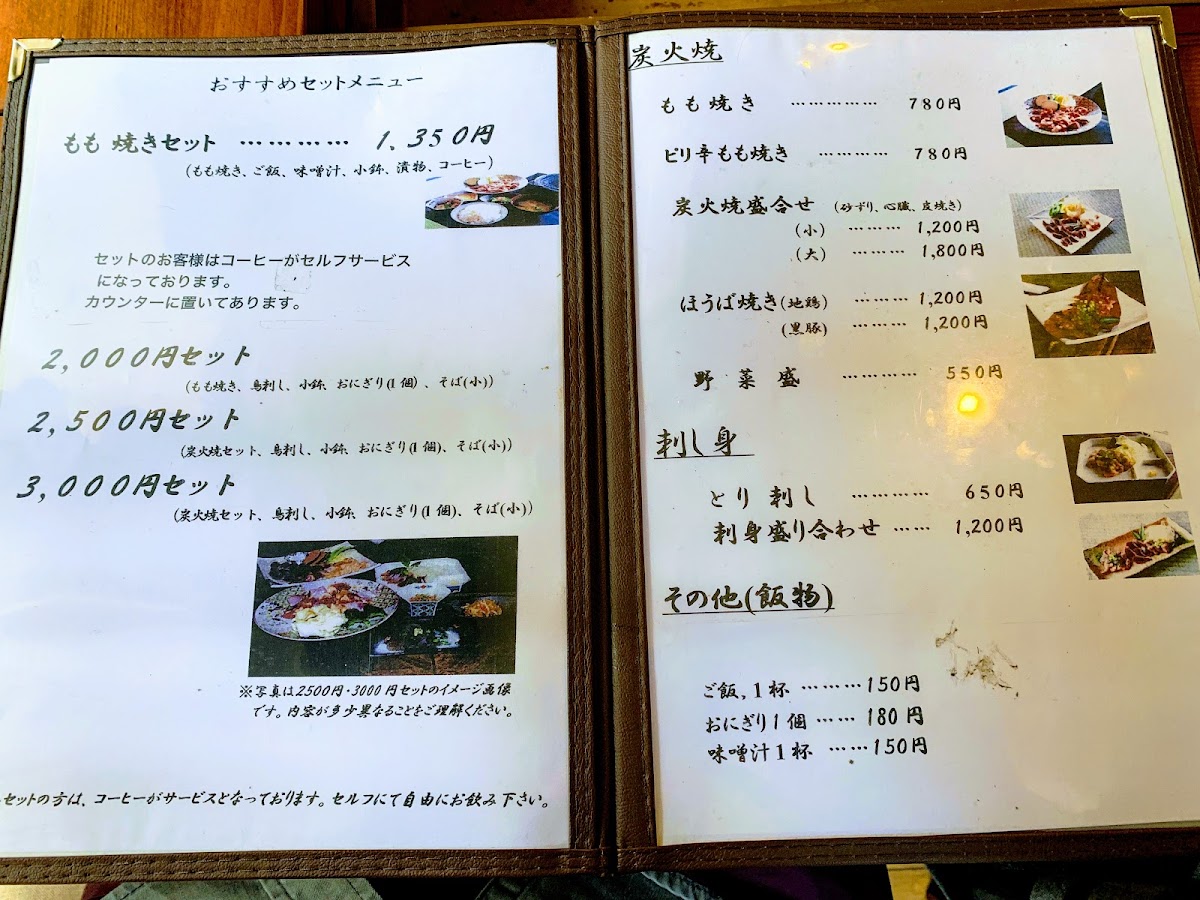 おすすめセットメニュー
もも 焼きセット ………… 1,350円
(もも焼き、ご飯、味噌汁、小鉢、漬物、コーヒー)
セットのお客様はコーヒーがセルフサービス
になっております。
カウンターに置いてあります。
2,000円セット
(もも焼き、鳥刺し、小鉢、おにぎり(1個)、そば(小))
2,500円セット
(炭火焼セット、鳥刺し、小鉢、おにぎり(1個)、そば(小))
3,000円セット
(炭火焼セット、鳥刺し、小鉢、おにぎり(1個)、そば(小))
※写真は2500円・3000円セットのイメージ画像
です。内容が多少異なることをご理解ください。
セットの方は、コーヒーがサービスとなっております。セルフにて自由にお飲み下さい。
炭火焼
もも焼き …………… 780円
ピリ辛もも焼き ………… 780円
炭火焼盛合せ (砂ずり、心臓、皮焼き)
(小) ……… 1,200円
(大) ……… 1,800円
ほうば焼き(地鶏) ……… 1,200円
(黒豚) ……… 1,200円
野菜盛 ………… 550円
刺し身
とり刺し ………… 650円
刺身盛り合わせ …… 1,200円
その他(飯物)
ご飯,1杯 ………150円
おにぎり1個 …… 180円
味噌汁1杯 ……150円